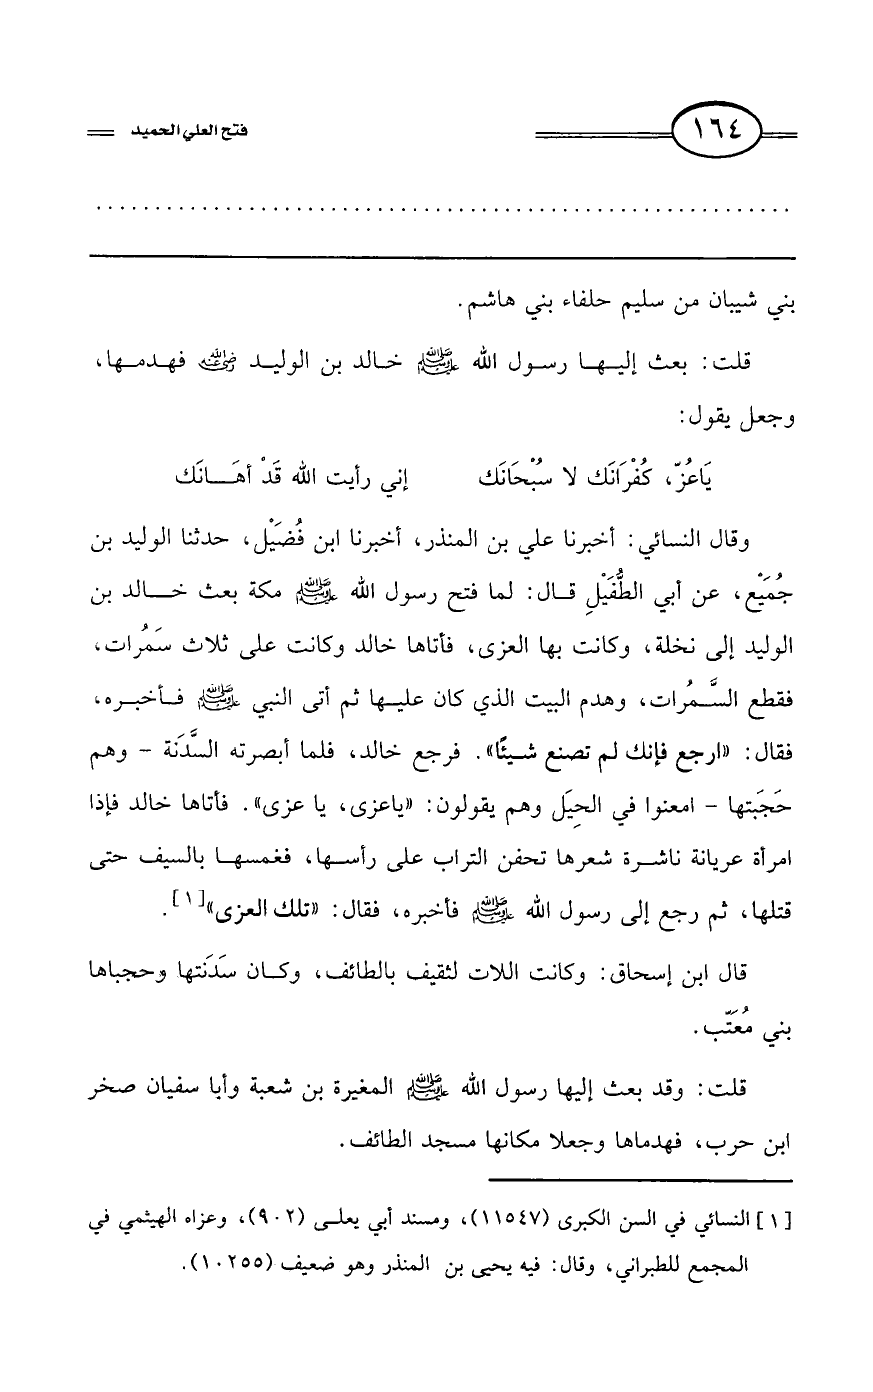 ١٦٤ فتح العلي الحميد
بني شيبان من سليم حلفاء بني هاشم.
قلت: بعث إليها رسول الله ﷺ خالد بن الوليد رضي الله عنه فهدمها،
وجعل يقول:
يَاعُزّ، كُفْرَانَك لا سُبْحَانَك إني رأيت الله قَدْ أهَانَك
وقال النسائي: أخبرنا علي بن المنذر، أخبرنا ابن فُضَيْل، حدثنا الوليد بن
جُمَيْع، عن أبي الطُّفَيْلِ قال: لما فتح رسول الله ﷺ مكة بعث خالد بن
الوليد إلى نخلة، وكانت بها العزى، فأتاها خالد وكانت على ثلاث سَمُرات،
فقطع السَّمُرات، وهدم البيت الذي كان عليها ثم أتى النبي ﷺ فأخبره،
فقال: «ارجع فإنك لم تصنع شيئًا». فرجع خالد، فلما أبصرته السَّدَنة - وهم
حَجَبَتها - امعنوا في الحِيَل وهم يقولون: «ياعزى، يا عزى». فأتاها خالد فإذا
امرأة عريانة ناشرة شعرها تحفن التراب على رأسها، فغمسها بالسيف حتى
قتلها، ثم رجع إلى رسول الله ﷺ فأخبره، فقال: «تلك العزى»[١].
قال ابن إسحاق: وكانت اللات لثقيف بالطائف، وكان سَدَنَتها وحجباها
بني مُعَتّب.
قلت: وقد بعث إليها رسول الله ﷺ المغيرة بن شعبة وأبا سفيان صخر
ابن حرب، فهدماها وجعلا مكانها مسجد الطائف.
[١] النسائي في السن الكبرى (١١٥٤٧)، ومسند أبي يعلى (٩٠٢)، وعزاه الهيثمي في
المجمع للطبراني، وقال: فيه يحيى بن المنذر وهو ضعيف (١٠٢٥٥).